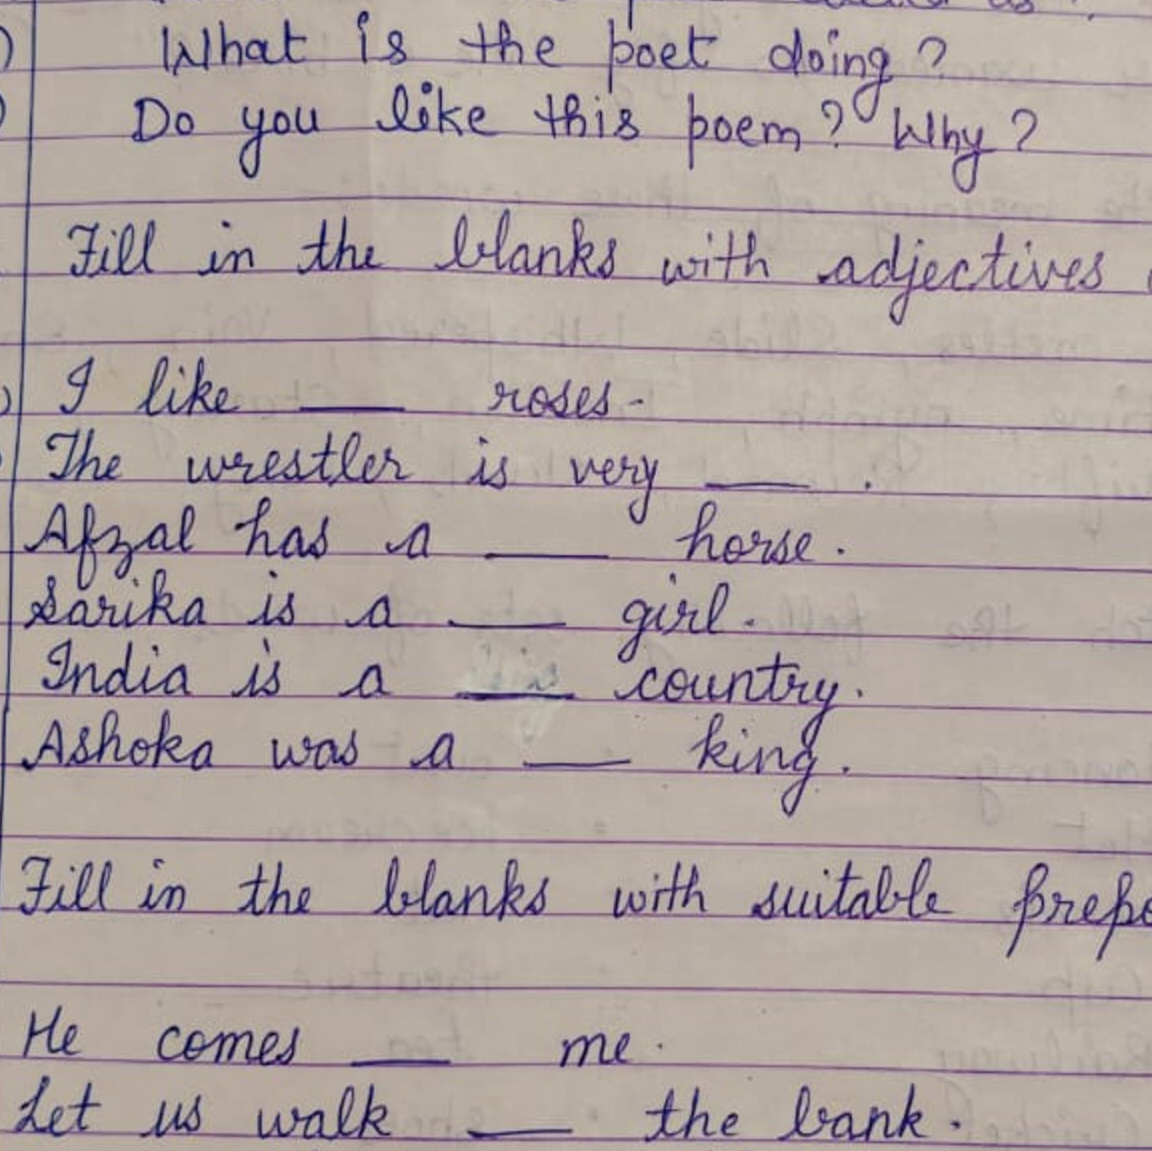 What is the poet doing?
Do you like this poem? Why?
Fill in the blanks with adjectives
I like ___ roses.
The wrestler is very ___ .
Afzal has a ___ horse.
Sarika is a ___ girl.
India is a ___ country.
Ashoka was a ___ king.
Fill in the blanks with suitable
He comes ___ me.
Let us walk ___ the bank.